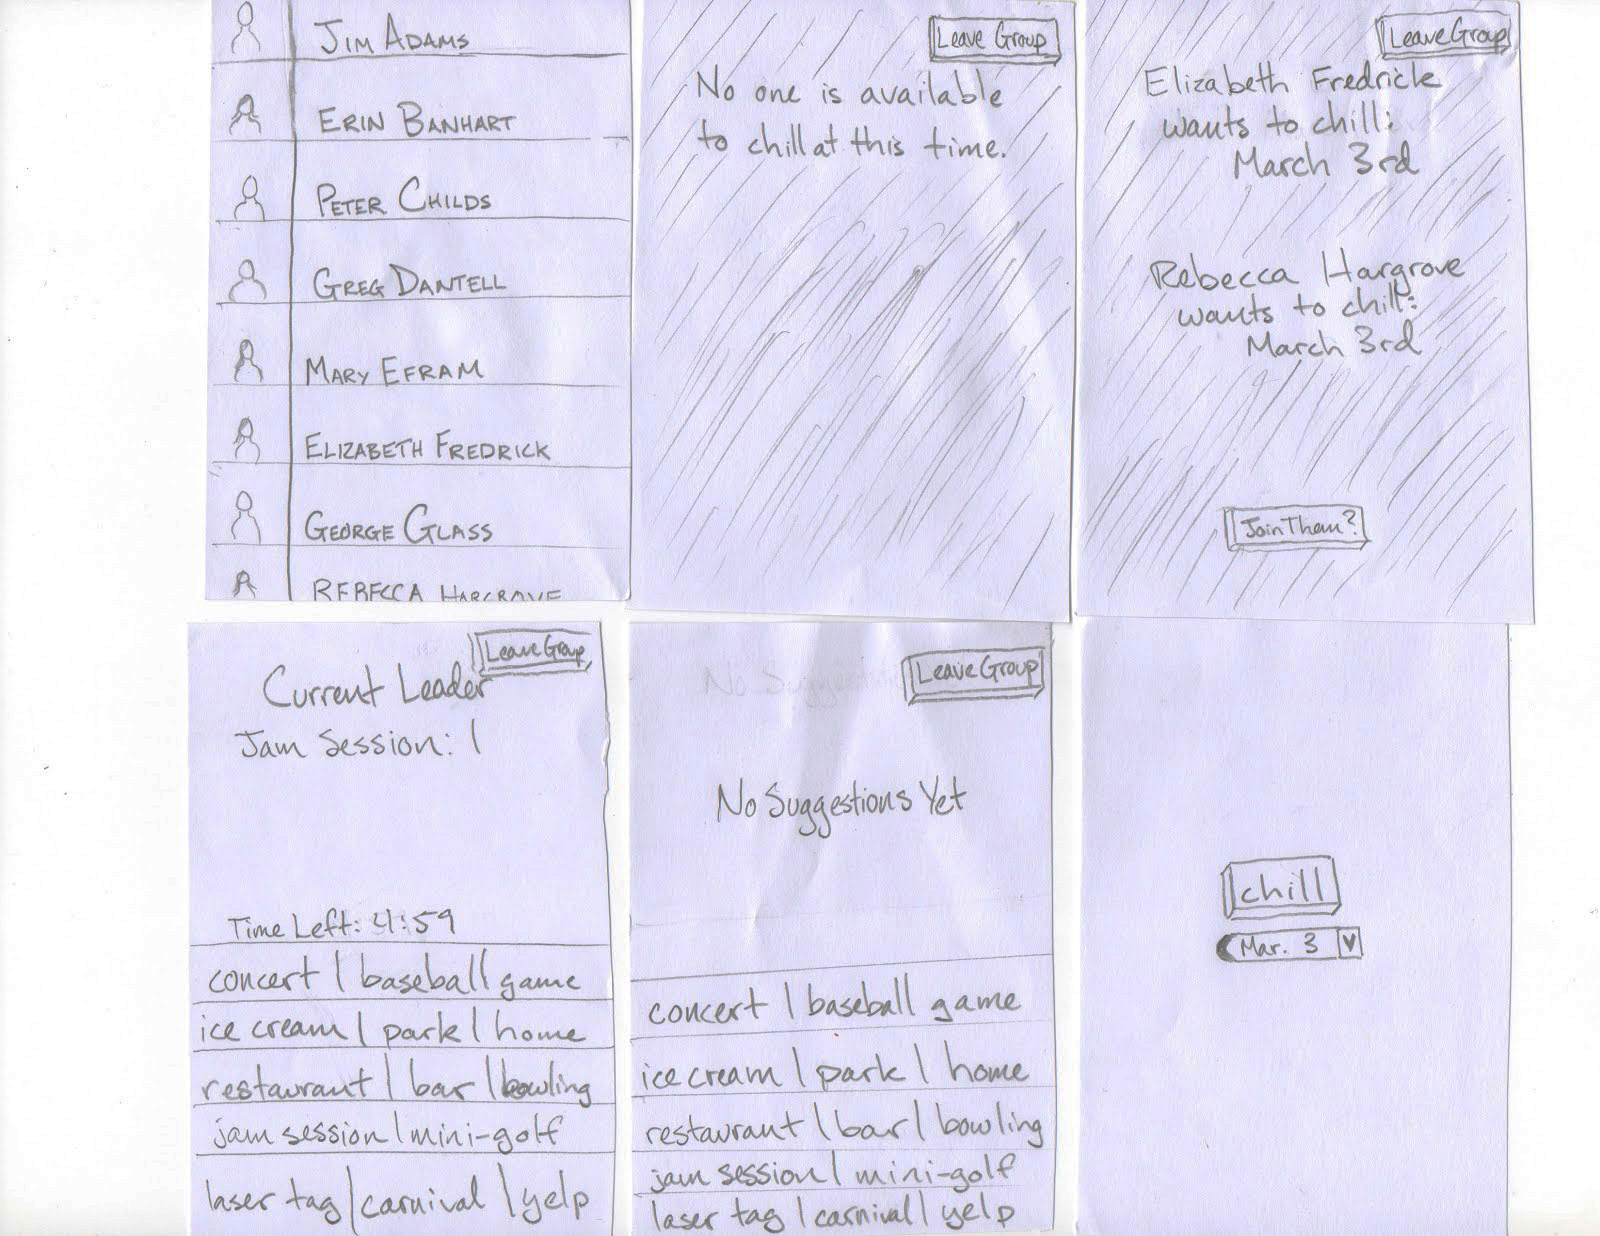 JIM ADAMS
ERIN BANHART
PETER CHILDS
GREG DANTELL
MARY EFRAM
ELIZABETH FREDRICK
GEORGE GLASS
REBECCA HARGROVE
Leave Group
No one is available
to chill at this time.
Leave Group
Elizabeth Fredrick
wants to chill:
March 3rd
Rebecca Hargrove
wants to chill:
March 3rd
Join Them?
Leave Group
Current Leader
Jam Session: 1
Time Left: 4:59
concert | baseball game
ice cream | park | home
restaurant | bar | bowling
jam session | mini-golf
laser tag | carnival | yelp
Leave Group
No Suggestions Yet
concert | baseball game
ice cream | park | home
restaurant | bar | bowling
jam session | mini-golf
laser tag | carnival | yelp
chill
Mar. 3